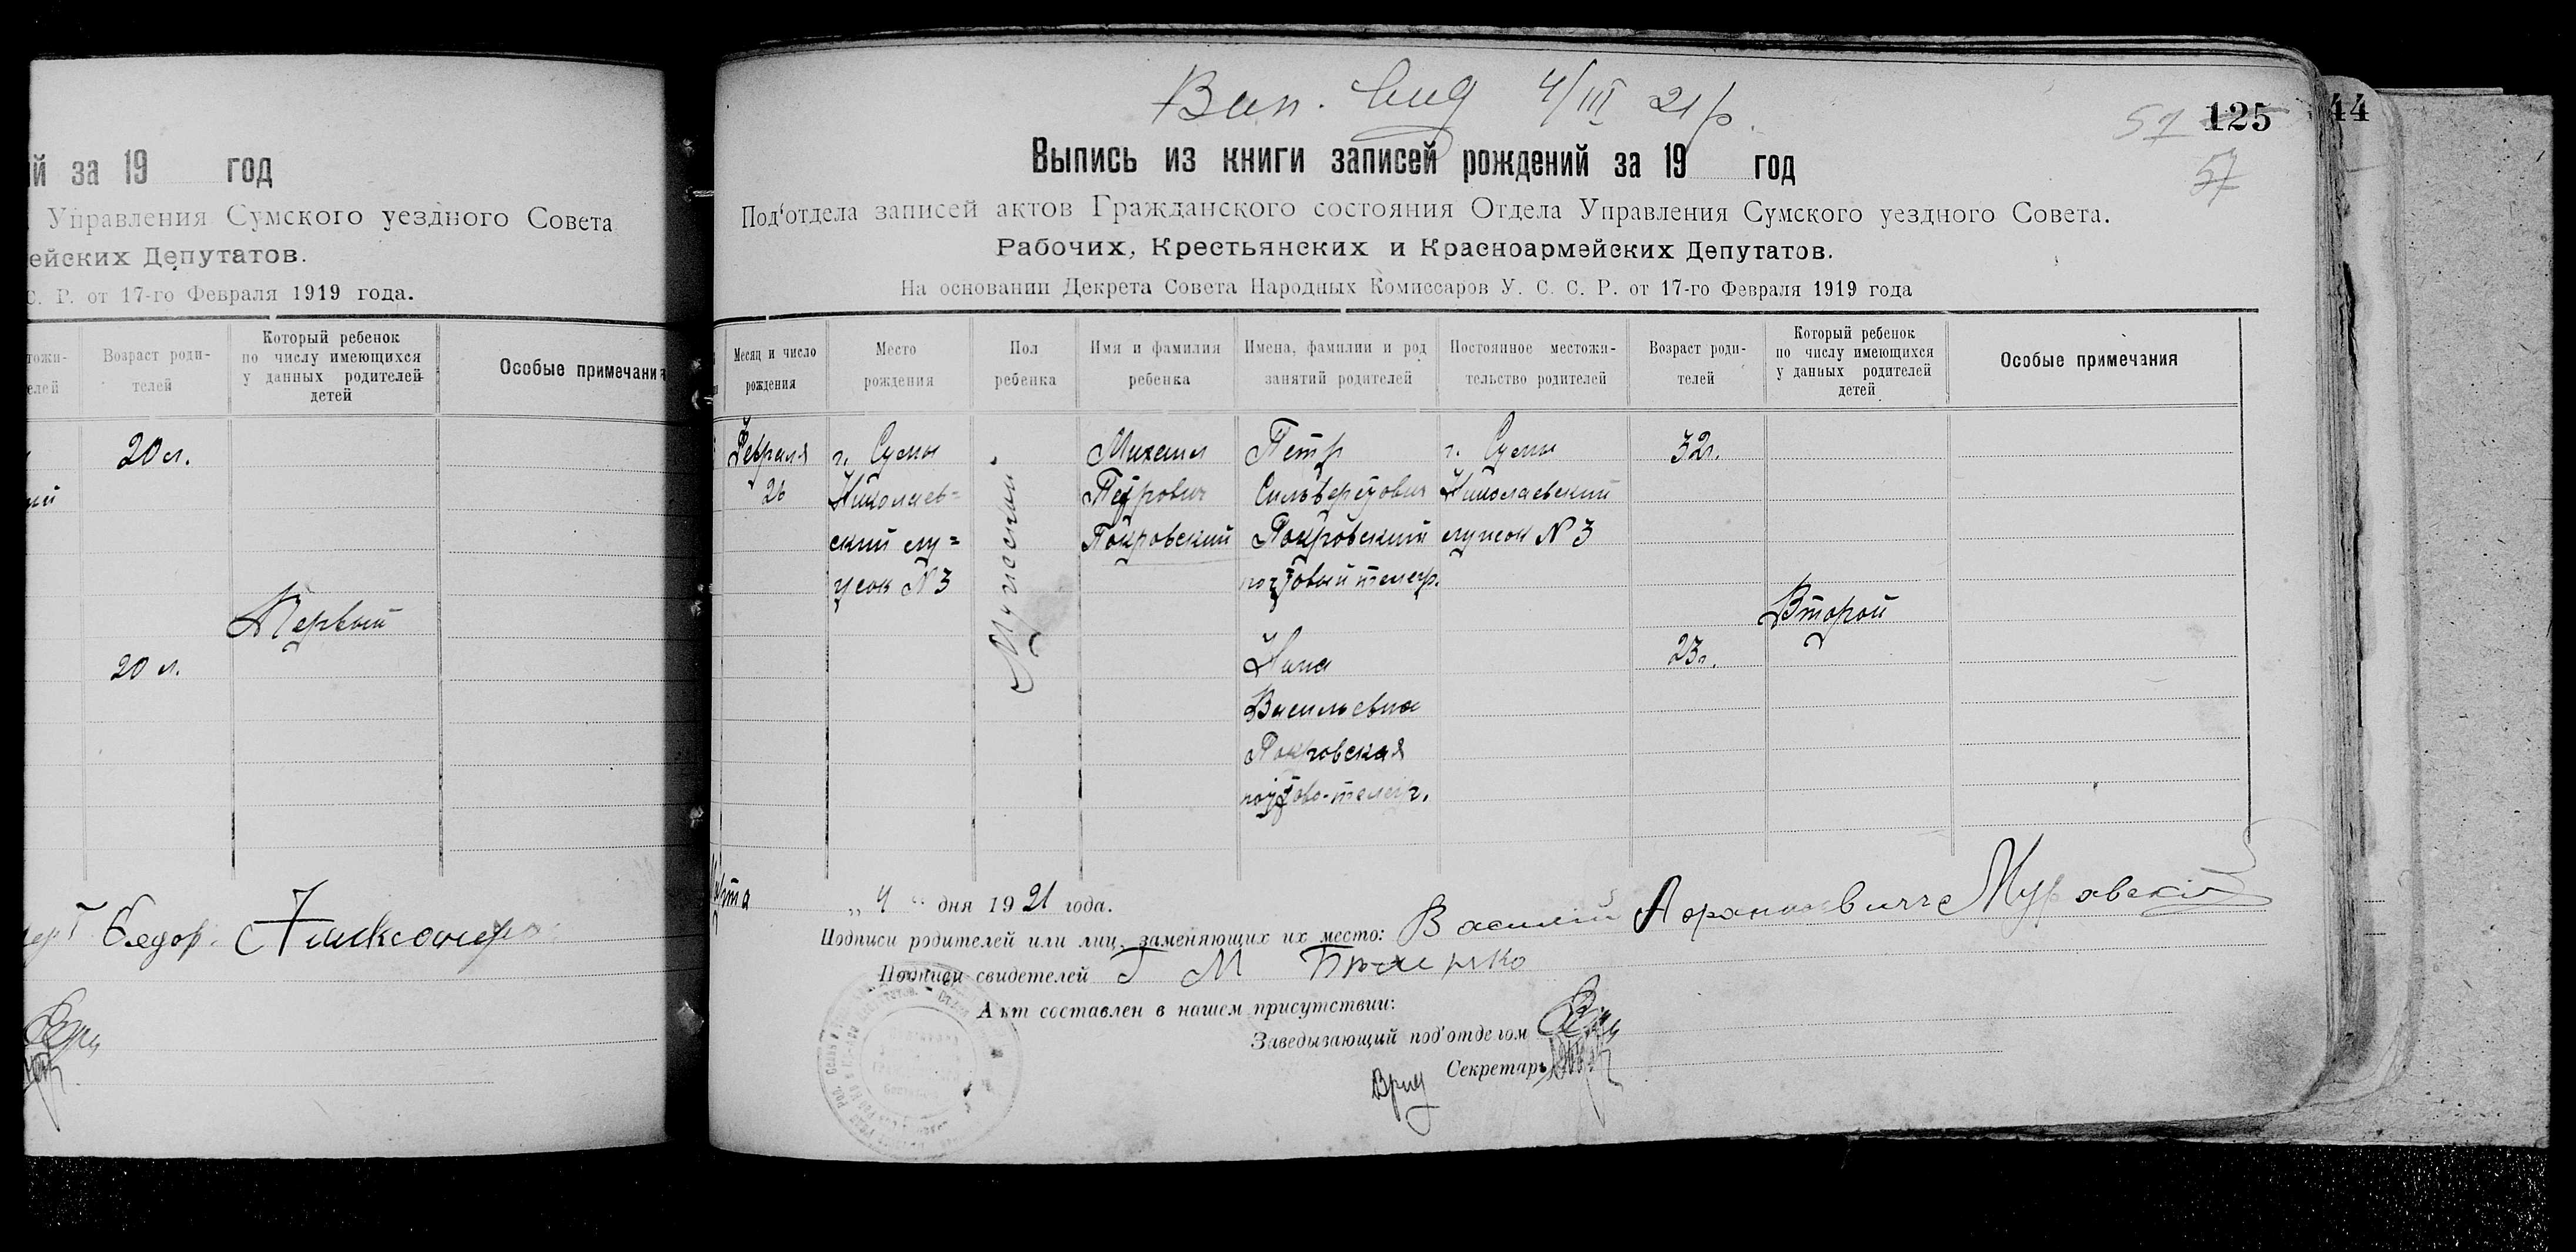 й за 19 год
Управления Сумского уездного Совета
ейских Депутатов.
С. Р. от 17-го Февраля 1919 года.
Возраст роди-
телей
Который ребенок
по числу имеющихся
у данных родителей
детей
Особые примечания
20 л.
Первый
20 л.
44
Вип. 4/III 21 р.
125
57
57
Выпись из книги записей рождений за 19 год
Под'отдела записей актов Гражданского состояния Отдела Управления Сумского уездного Совета.
Рабочих, Крестьянских и Красноармейских Депутатов.
На основании Декрета Совета Народных Комиссаров У. С. С. Р. от 17-го Февраля 1919 года
Месяц и число
рождения
Место
рождения
Пол
ребенка
Имя и фамилия
ребенка
Имена, фамилии и род
занятий родителей
Постоянное местожи-
тельство родителей
Возраст роди-
телей
Который ребенок
по числу имеющихся
у данных родителей
детей
Особые примечания
Февраля
26
г. Сумы
Николаев=
ский лу=
жок N 3
Мужеский
Михаил
Петрович
Покровский
Петр
Сильверстович
Покровский
почтовый телегр.
Нина
Васильевна
Покровская
почтово-телегр.
г. Сумы
Николаевский
лужок N 3
32 г.
23 г.
Второй
Марта „ 4 “ дня 1921 года.
Подписи родителей или лиц, заменяющих их место: Василий Муравский
Подписи свидетелей Г М
Акт составлен в нашем присутствии:
Заведывающий под'отделом
Врид Секретарь